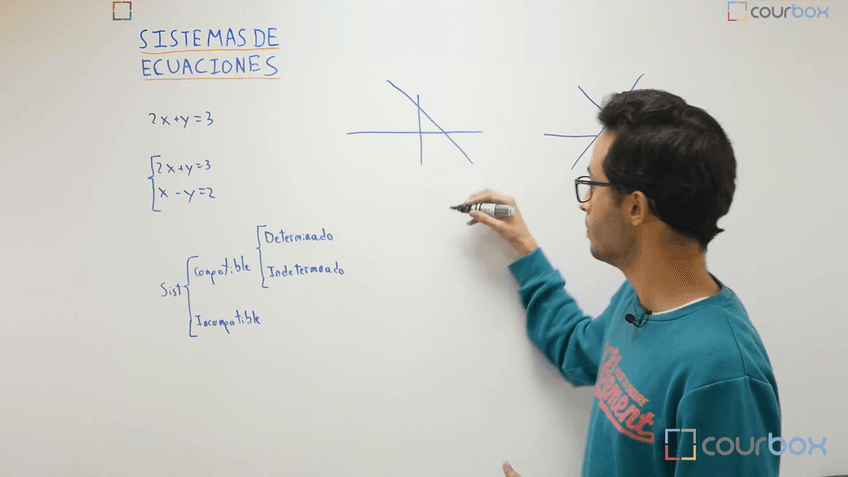 courbox
SISTEMAS DE
ECUACIONES
2x+y=3
2x+y=3
x-y=2
Sist
Compatible
Determinado
Indeterminado
Incompatible
courbox